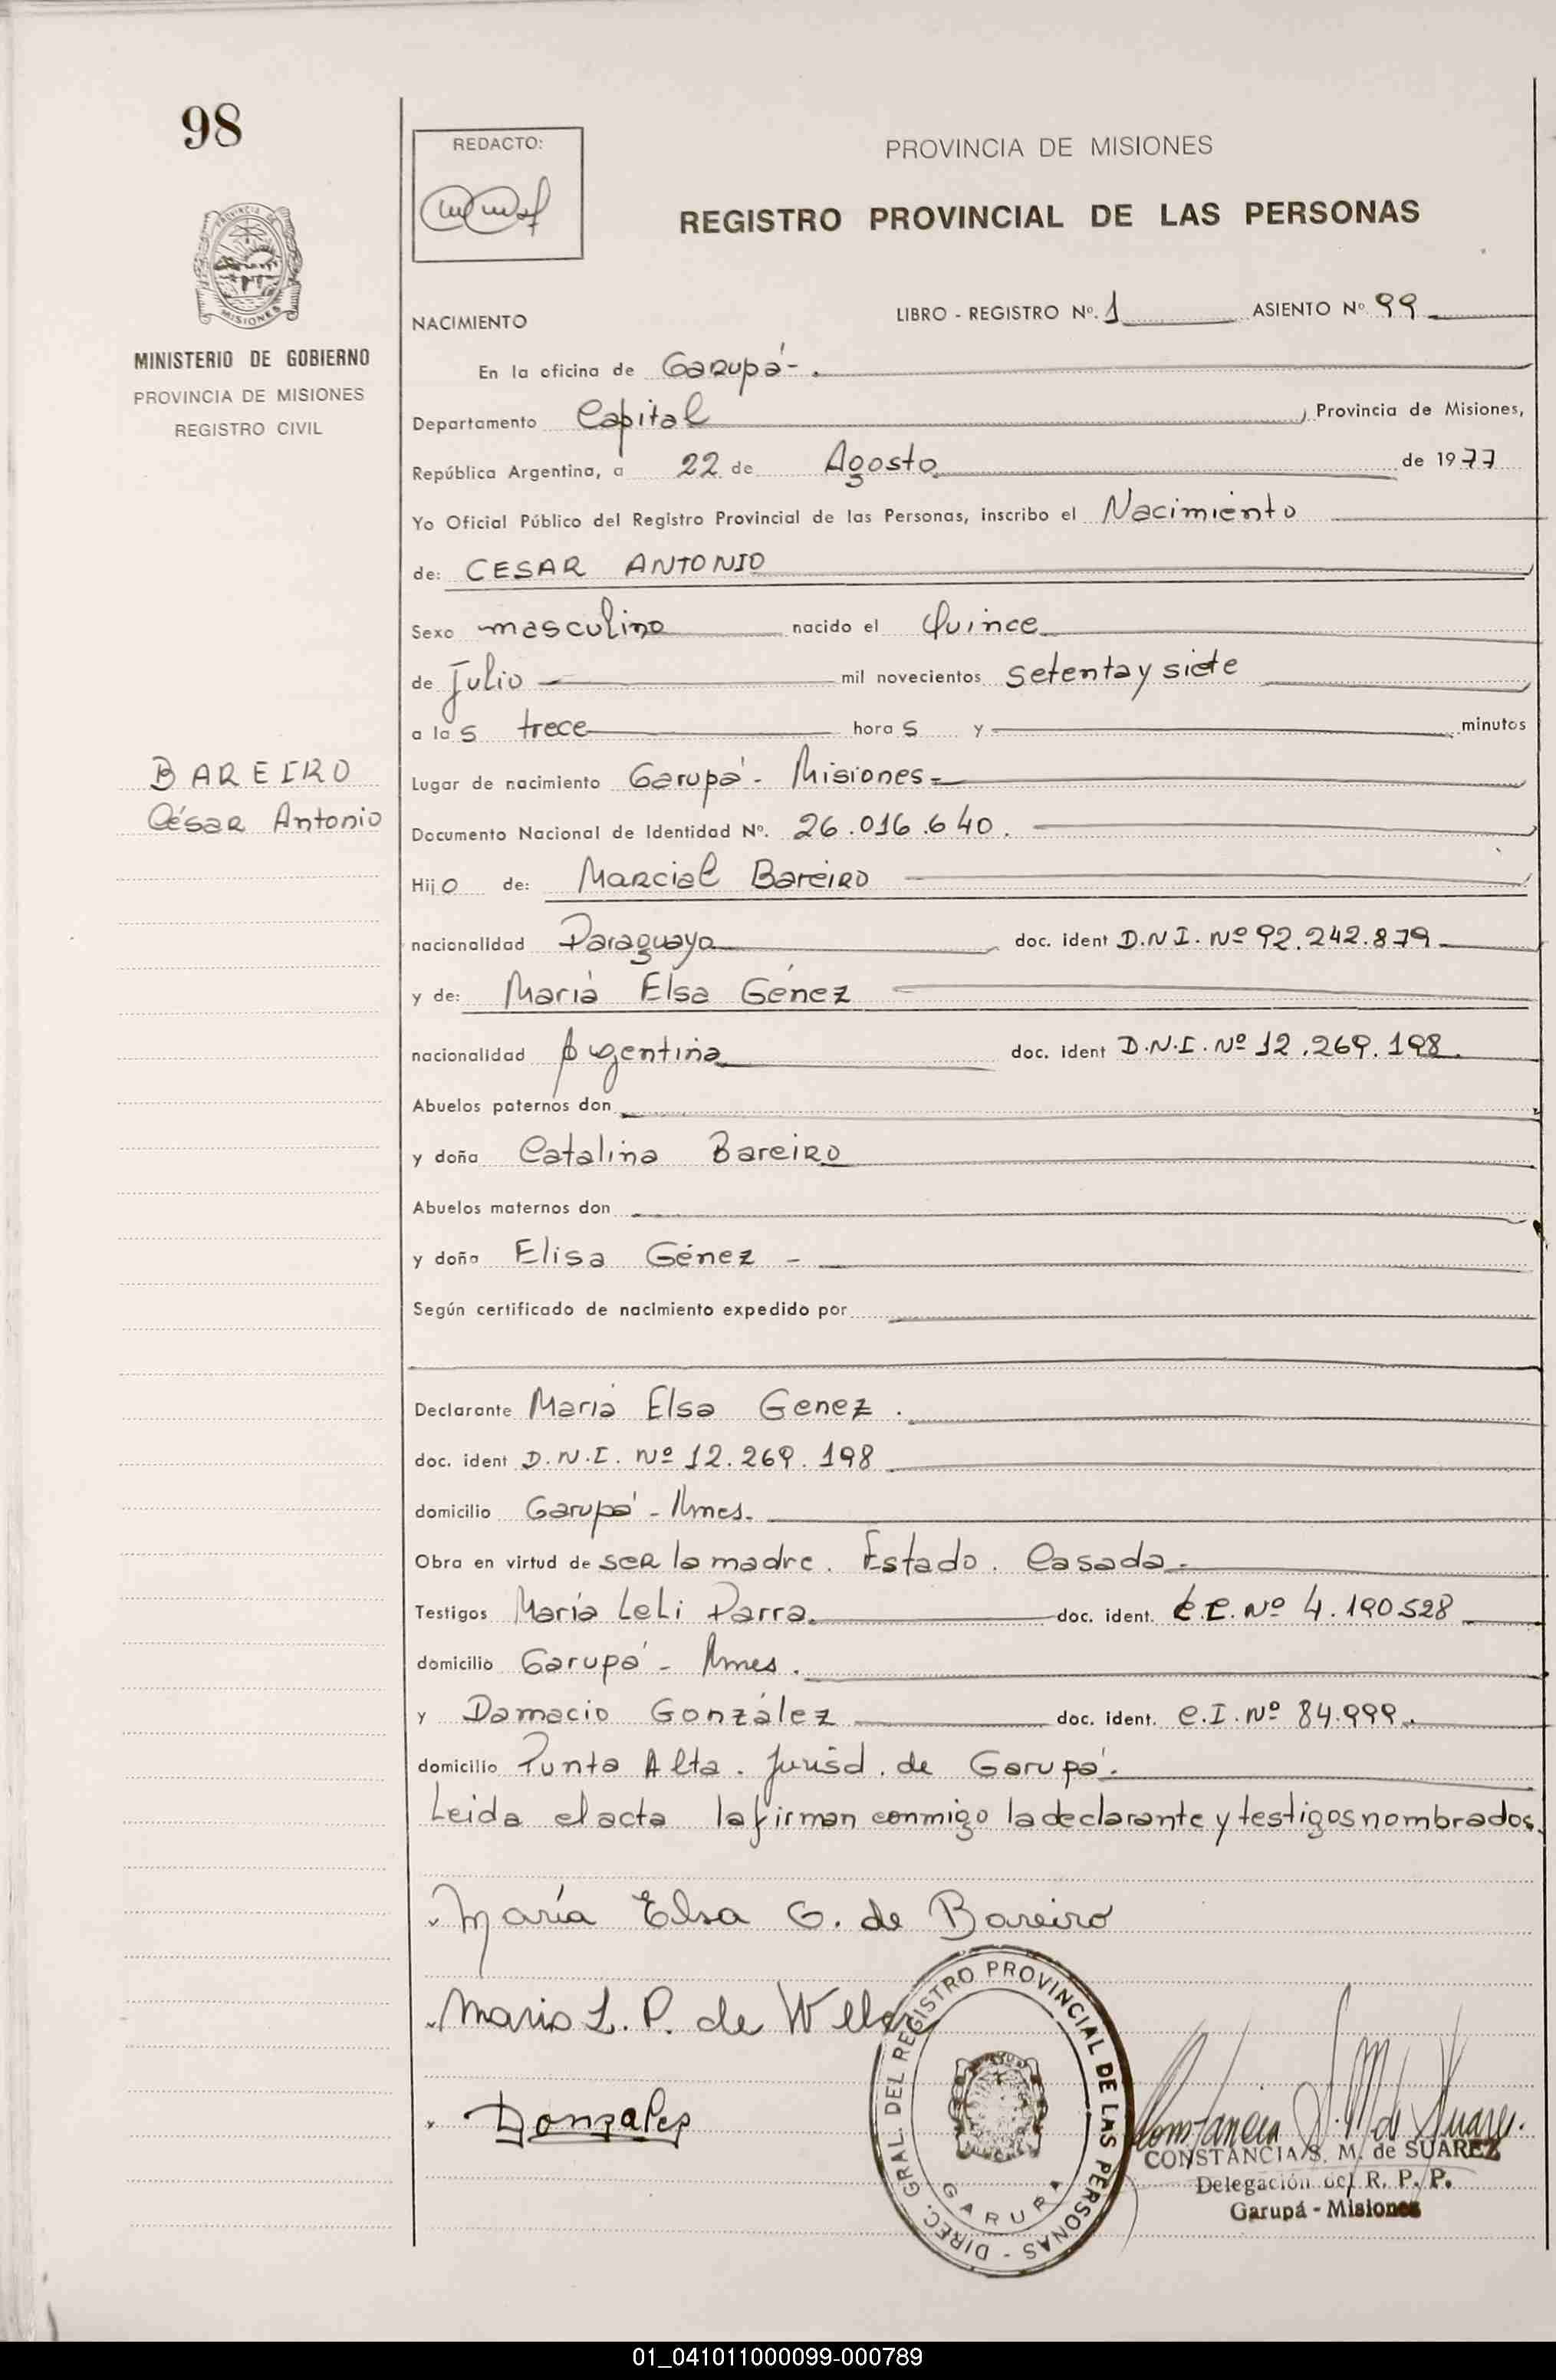 98
REDACTO:
PROVINCIA DE MISIONES
REGISTRO PROVINCIAL DE LAS PERSONAS
PROVINCIA DE
MISIONES
MINISTERIO DE GOBIERNO
PROVINCIA DE MISIONES
REGISTRO CIVIL
NACIMIENTO LIBRO - REGISTRO Nº. 1 ASIENTO Nº 99
En la oficina de Garupá -.
Departamento Capital, Provincia de Misiones,
República Argentina, a 22 de Agosto de 1977
Yo Oficial Público del Registro Provincial de las Personas, inscribo el Nacimiento
de: CESAR ANTONIO
Sexo masculino nacido el Quince
de Julio mil novecientos setenta y siete
a las trece horas y minutos
BAREIRO
César Antonio
Lugar de nacimiento Garupá - Misiones =
Documento Nacional de Identidad Nº. 26.016.640.
Hijo de: Marcial Bareiro
nacionalidad Paraguaya doc. ident D.N.I. Nº 92.242.879
y de: María Elsa Génez
nacionalidad Argentina doc. ident D.N.I. Nº 12.269.198
Abuelos paternos don
y doña Catalina Bareiro
Abuelos maternos don
y doña Elisa Génez -
Según certificado de nacimiento expedido por
Declarante María Elsa Genez.
doc. ident D.N.I. Nº 12.269.198
domicilio Garupá - Mnes.
Obra en virtud de ser la madre. Estado. Casada.
Testigos María Leli Parra. doc. ident. L.C. Nº 4.190528
domicilio Garupá - Mnes.
y Damacio González doc. ident. C.I. Nº 84.999.
domicilio Punta Alta. Jurisd. de Garupá.
Leida el acta la firman conmigo la declarante y testigos nombrados.
María Elsa G. de Bareiro
Maria L. P. de
Gonzalez
DIREC. GRAL. DEL REGISTRO PROVINCIAL DE LAS PERSONAS -
GARUPA
Constancia S. M. de Suarez.
CONSTANCIA S. M. de SUAREZ
Delegación del R. P. P.
Garupá - Misiones
01_041011000099-000789